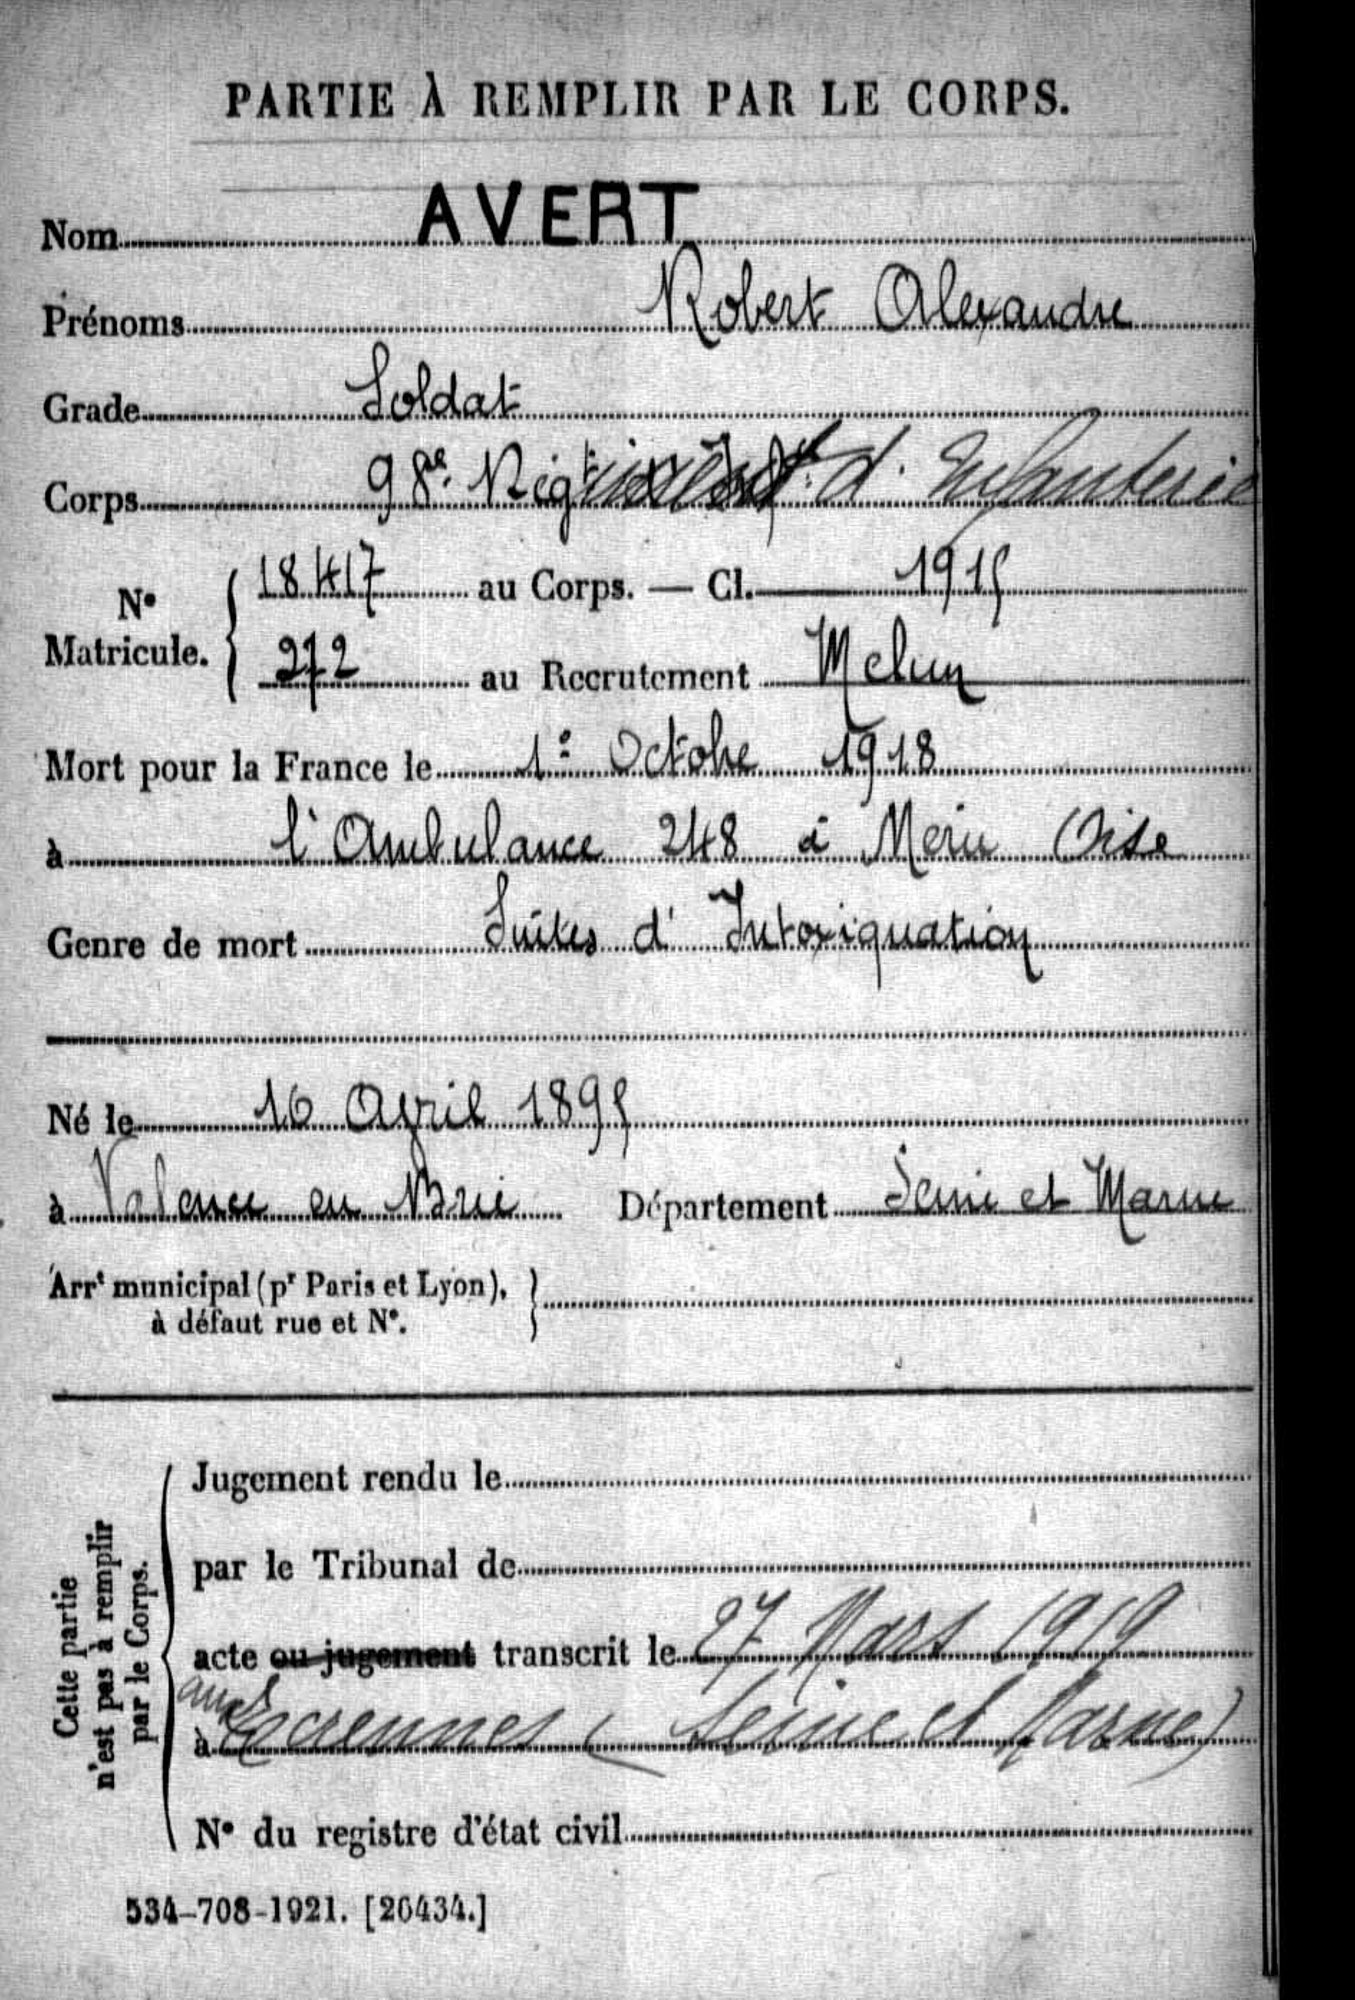 PARTIE À REMPLIR PAR LE CORPS.
Nom AVERT
Prénoms Robert Alexandre
Grade Soldat
Corps 98e Régiment d'Infanterie
N° Matricule. { 18417 au Corps. — Cl. 1915
272 au Recrutement Melun
Mort pour la France le 1° Octobre 1918
à l'Ambulance 248 à Meru Oise
Genre de mort Suites d'Intoxiquation
Né le 16 Avril 1895
à Valence en Brie Département Seine et Marne
Arrt municipal (pr Paris et Lyon),
à défaut rue et N°.
Cette partie
n'est pas à remplir
par le Corps.
Jugement rendu le
par le Tribunal de
acte ou jugement transcrit le 27 Mars 1919
à aux Ecrennes (Seine et Marne)
N° du registre d'état civil
534-708-1921. [26434.]